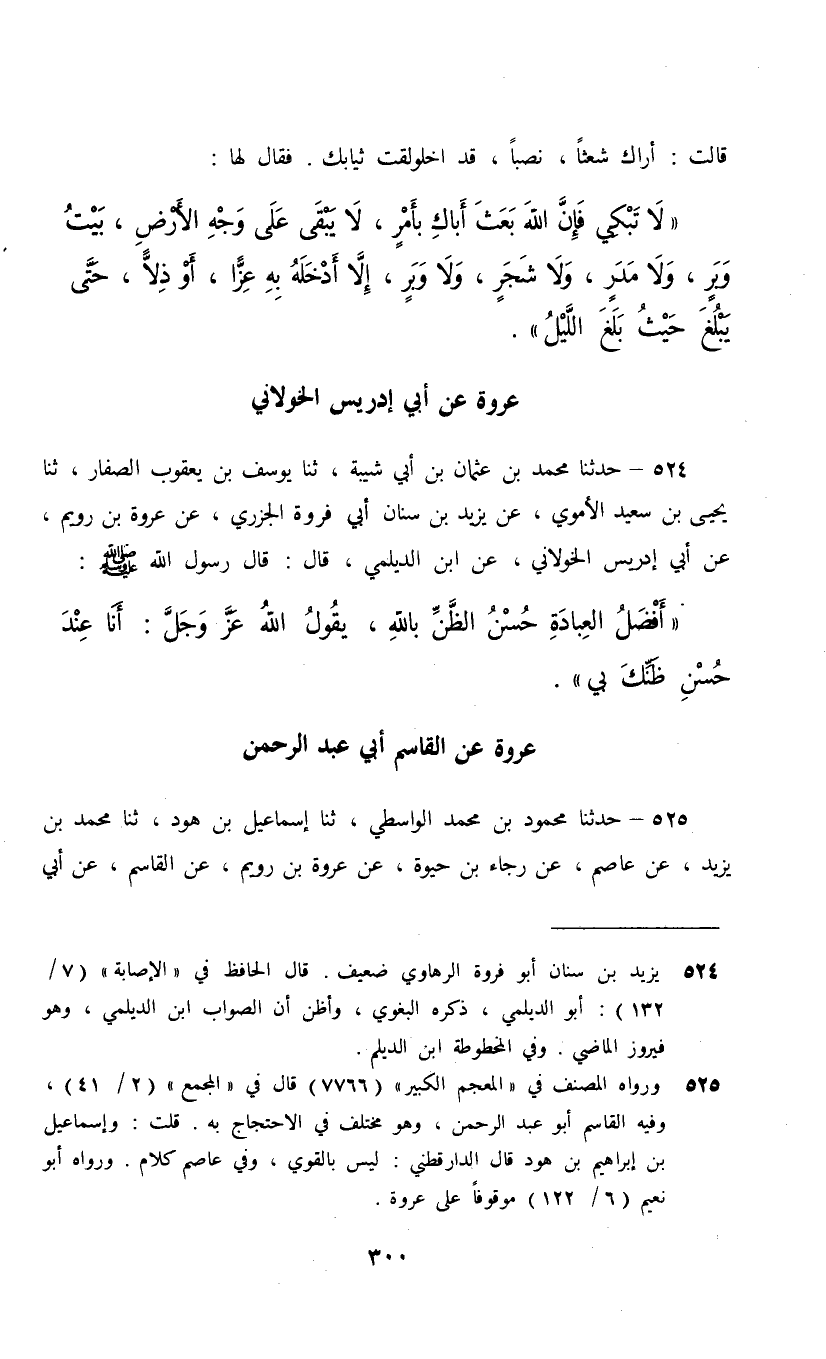 قالت : أراك شعثاً ، نصباً ، قد اخلولقت ثيابك . فقال لها :
« لَا تَبْكِي فَإِنَّ اللهَ بَعَثَ أَباكِ بِأَمْرٍ ، لَا يَبْقَى عَلَى وَجْهِ الأَرْضِ ، بَيْتُ
وَبَرٍ ، وَلَا مَدَرٍ ، وَلَا شَجَرٍ ، وَلَا وَبَرٍ ، إِلَّا أَدْخَلَهُ بِهِ عِزًّا ، أَوْ ذِلاًّ ، حَتَّى
يَبْلُغَ حَيْثُ بَلَغَ اللَّيْلُ » .
عروة عن أبي إدريس الخولاني
٥٢٤ – حدثنا محمد بن عثمان بن أبي شيبة ، ثنا يوسف بن يعقوب الصفار ، ثنا
يحيى بن سعيد الأموي ، عن يزيد بن سنان أبي فروة الجزري ، عن عروة بن رويم ،
عن أبي إدريس الخولاني ، عن ابن الديلمي ، قال : قال رسول الله ﷺ :
« أَفْضَلُ العِبادَةِ حُسْنُ الظَّنِّ باللهِ ، يقُولُ اللهُ عَزَّ وَجَلَّ : أَنَا عِنْدَ
حُسْنِ ظَنِّكَ بي » .
عروة عن القاسم أبي عبد الرحمن
٥٢٥ – حدثنا محمود بن محمد الواسطي ، ثنا إسماعيل بن هود ، ثنا محمد بن
يزيد ، عن عاصم ، عن رجاء بن حيوة ، عن عروة بن رويم ، عن القاسم ، عن أبي
٥٢٤ يزيد بن سنان أبو فروة الرهاوي ضعيف . قال الحافظ في « الإصابة » ( ٧ /
١٣٢ ) : أبو الديلمي ، ذكره البغوي ، وأظن أن الصواب ابن الديلمي ، وهو
فيروز الماضي . وفي المخطوطة ابن الديلم .
٥٢٥ ورواه المصنف في « المعجم الكبير » (٧٧٦٦) قال في « المجمع » ( ٢ / ٤١ ) ،
وفيه القاسم أبو عبد الرحمن ، وهو مختلف في الاحتجاج به . قلت : وإسماعيل
بن إبراهيم بن هود قال الدارقطني : ليس بالقوي ، وفي عاصم كلام . ورواه أبو
نعيم ( ٦ / ١٢٢ ) موقوفاً على عروة .
٣٠٠